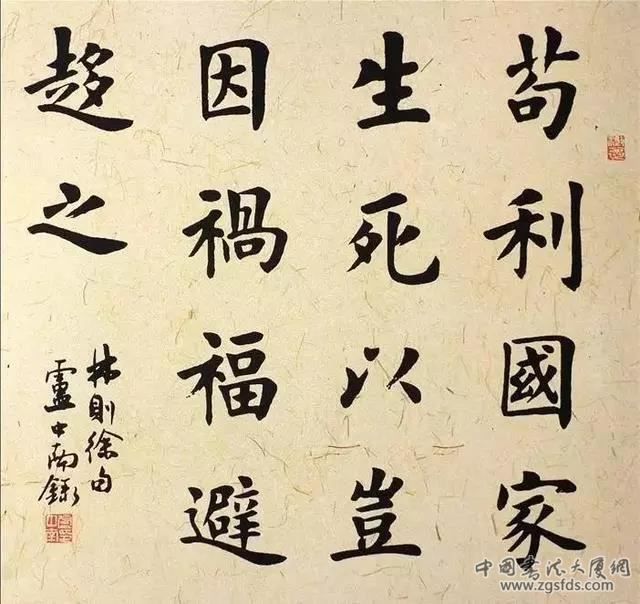 苟利國家
生死以豈
因禍福避
趍之
林則徐句
盧中南録
中国书法大厦網
www.zgsfds.com